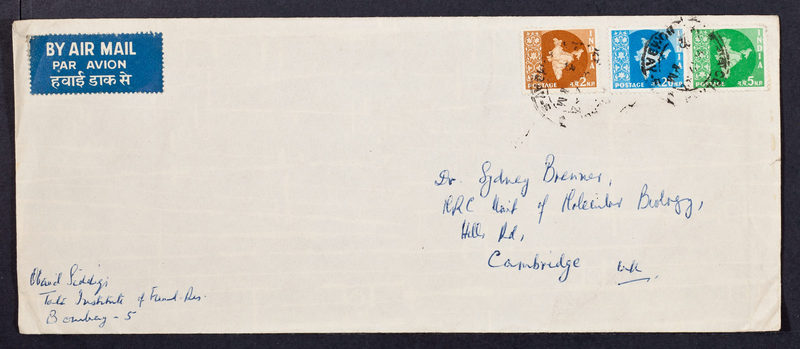 BY AIR MAIL
PAR AVION
हवाई डाक से
INDIA
POSTAGE न.पै. 2 N.P.
INDIA
POSTAGE
INDIA
POSTAGE न.पै. 5 N.P.
BOMBAY
Dr. Sydney Brenner,
MRC Unit of Molecular Biology,
Hills Rd,
Cambridge U.K.
Obaid Siddiqi
Tata Institute of Fund. Res.
Bombay - 5